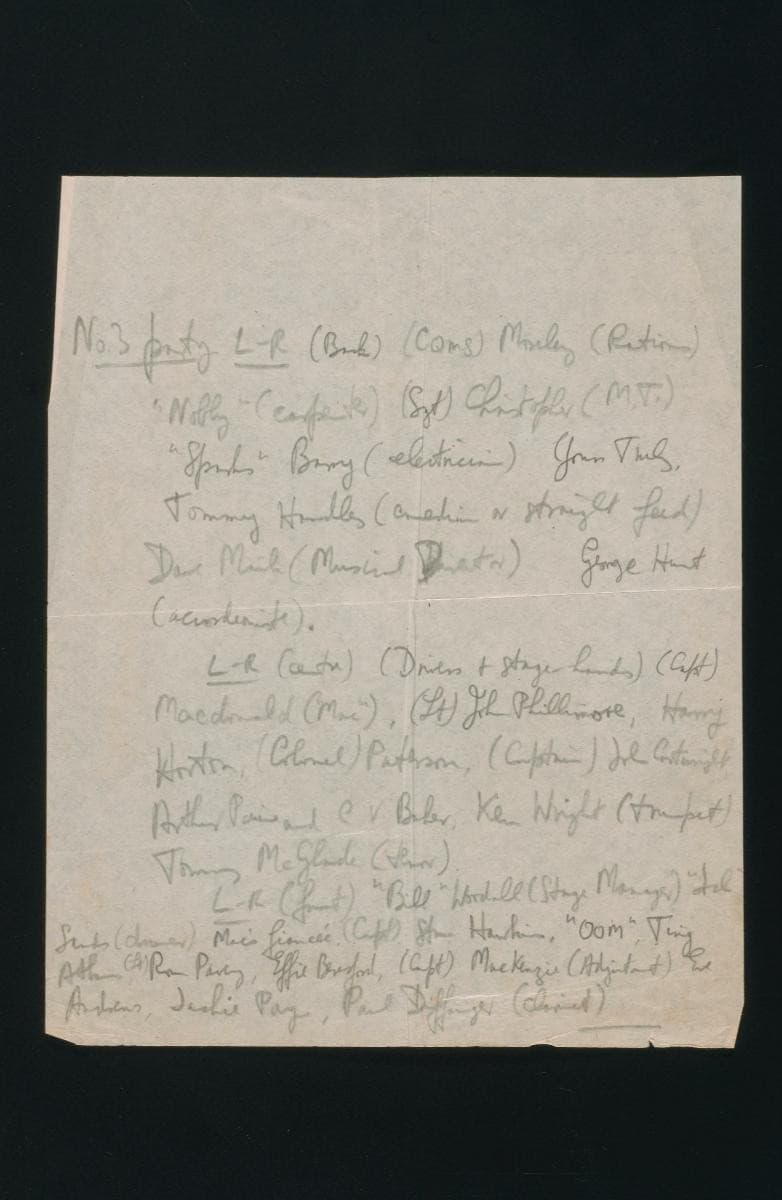 No.3 party L-R (Back) (Coms) Moseley (Rations)
"Nobby" (carpenter) (Sgt) Christopher (M.T.)
"Sparks" Barry (electrician) Yours Truly,
Tommy Handles (comedian or straight feed)
Dave (Musical Director) George Hunt
(accordionist).
L-R (centre) (Drivers & stage hands) (Capt)
Macdonald ("Mac"), (Lt) John Phillimore, Harry
Horton, (Colonel) Paterson, (Captain) John Cartwright
Arthur and C V Baker, Ken Wright (trumpet)
Tommy McGlade (tenor)
L-R (front) "Bill" (Stage Manager)
(drummer) Mac's fiancée, (Capt) Hawkins, "OOM",
(Lt) Ron, Effie Beresford, (Capt) MacKenzie (Adjutant) Eve
Andrews, Jackie Page, Paul (clarinet)